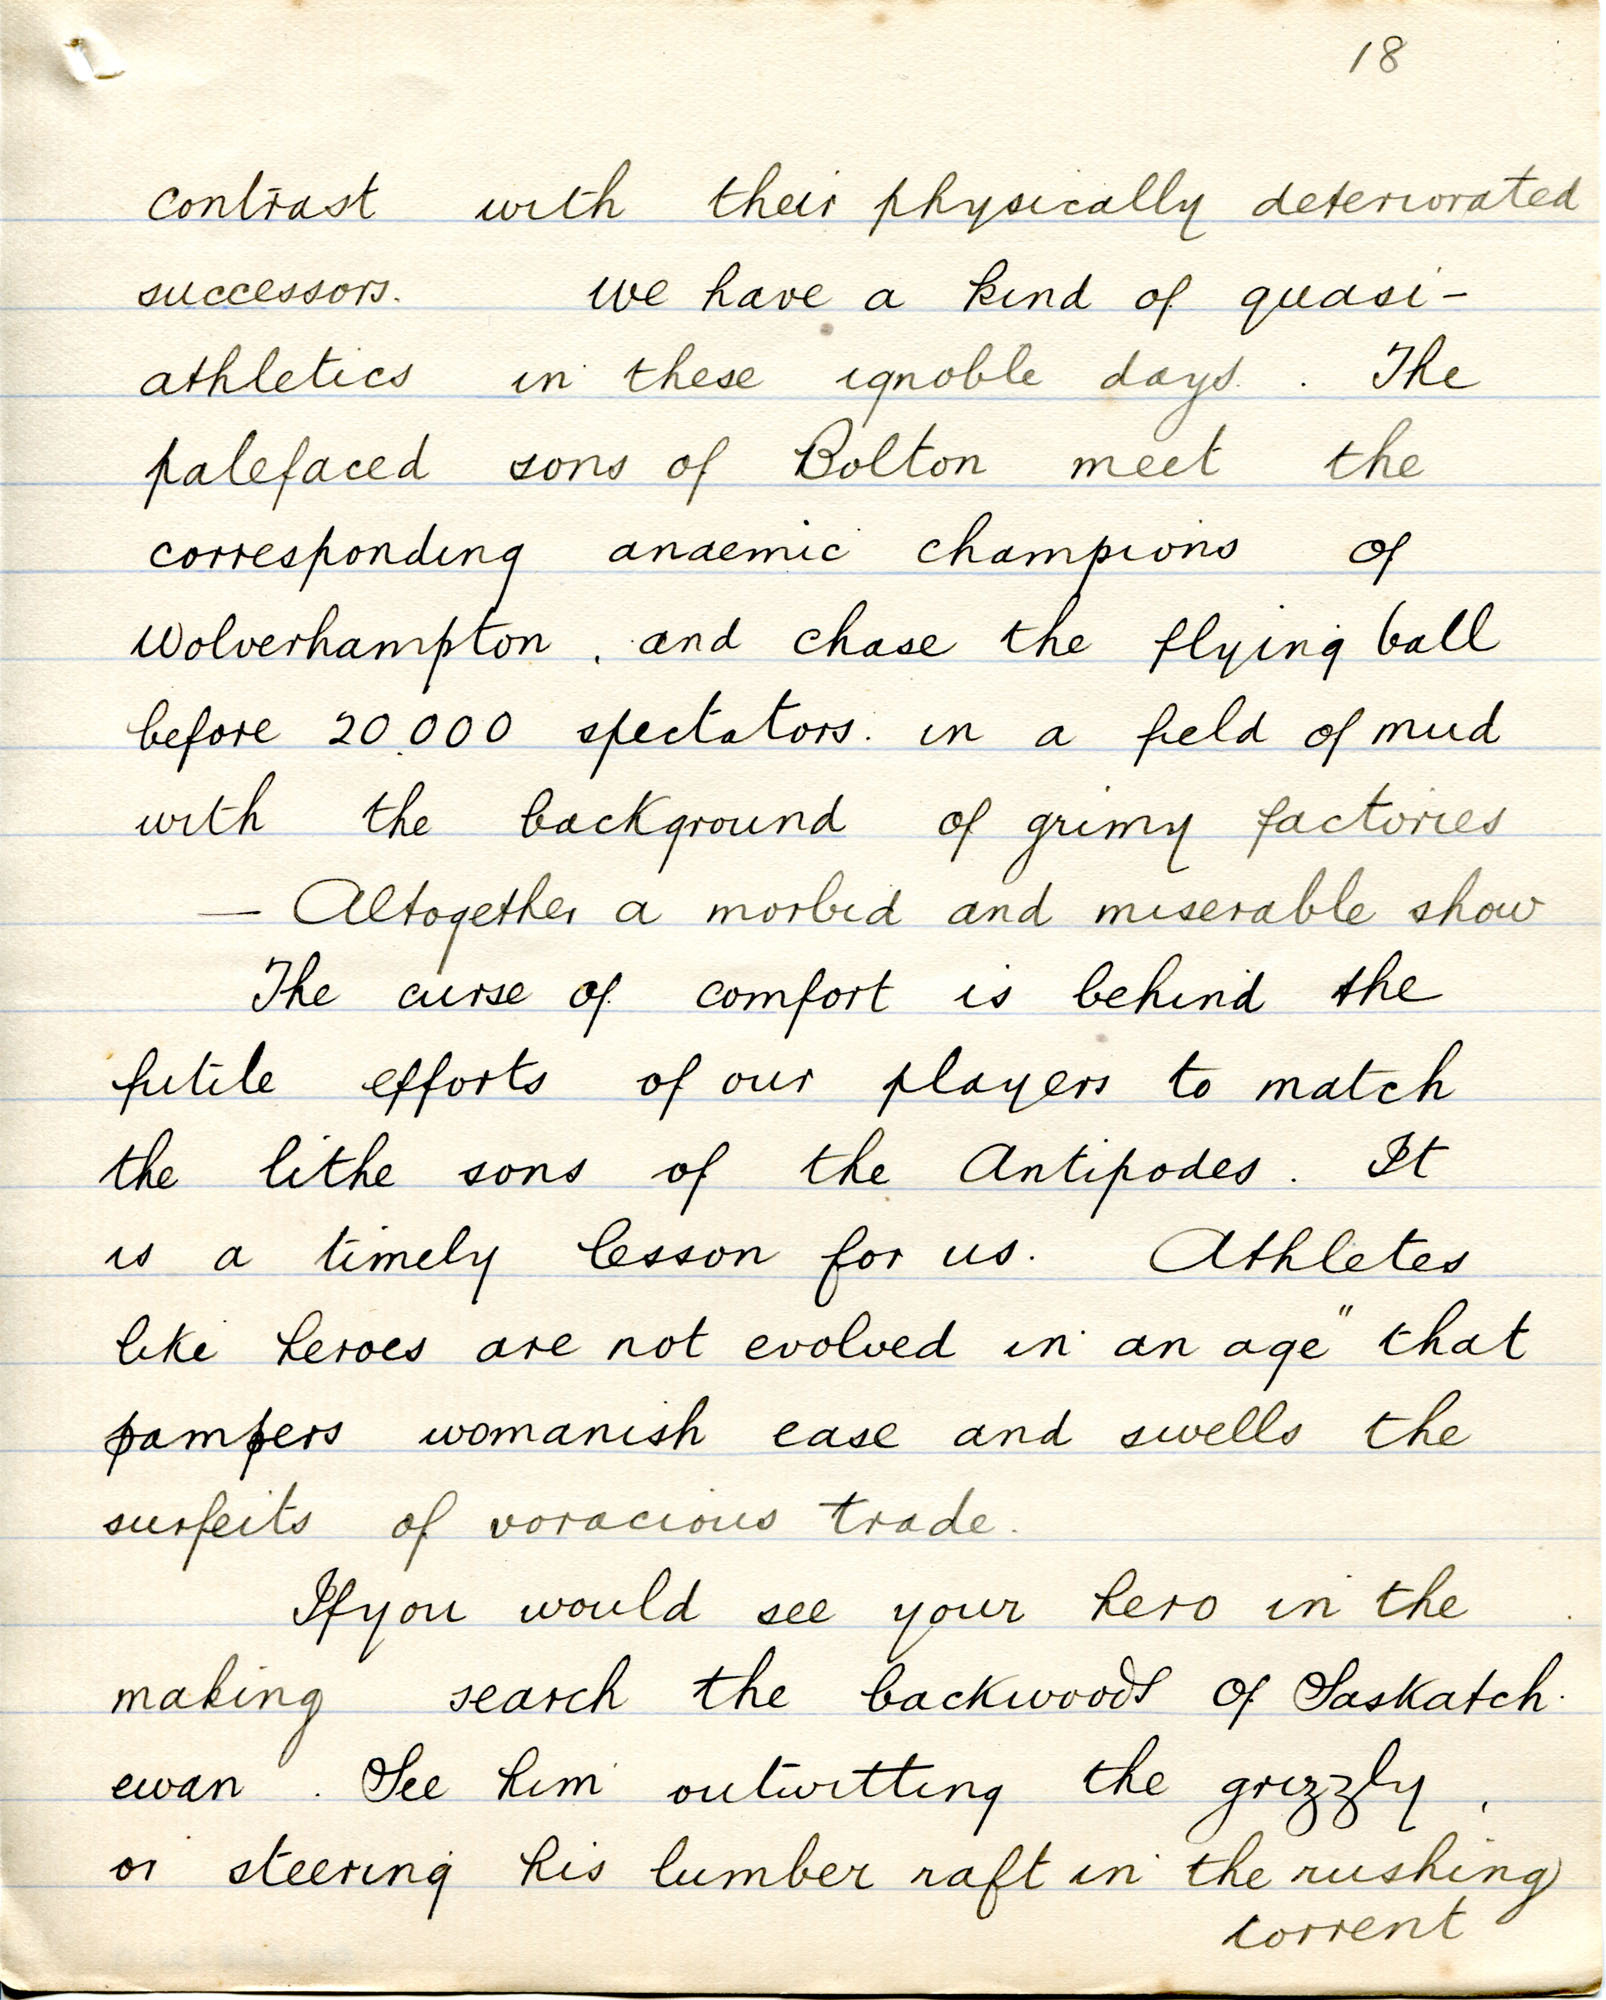 18
contrast with their physically deteriorated
successors. We have a kind of quasi-
athletics in these ignoble days. . The
palefaced sons of Bolton meet the
corresponding anaemic champions of
Wolverhampton, and chase the flying ball
before 20.000 spectators. in a field of mud
with the background of grimy factories
— Altogether a morbid and miserable show
The curse of comfort is behind the
futile efforts of our players to match
the lithe sons of the Antipodes. It
is a timely lesson for us. Athletes
like heroes are not evolved in an age" that
pampers womanish ease and swells the
surfeits of voracious trade.
If you would see your hero in the
making search the backwoods of Saskatch-
ewan. See him outwitting the grizzly,
or steering his lumber raft in the rushing
torrent